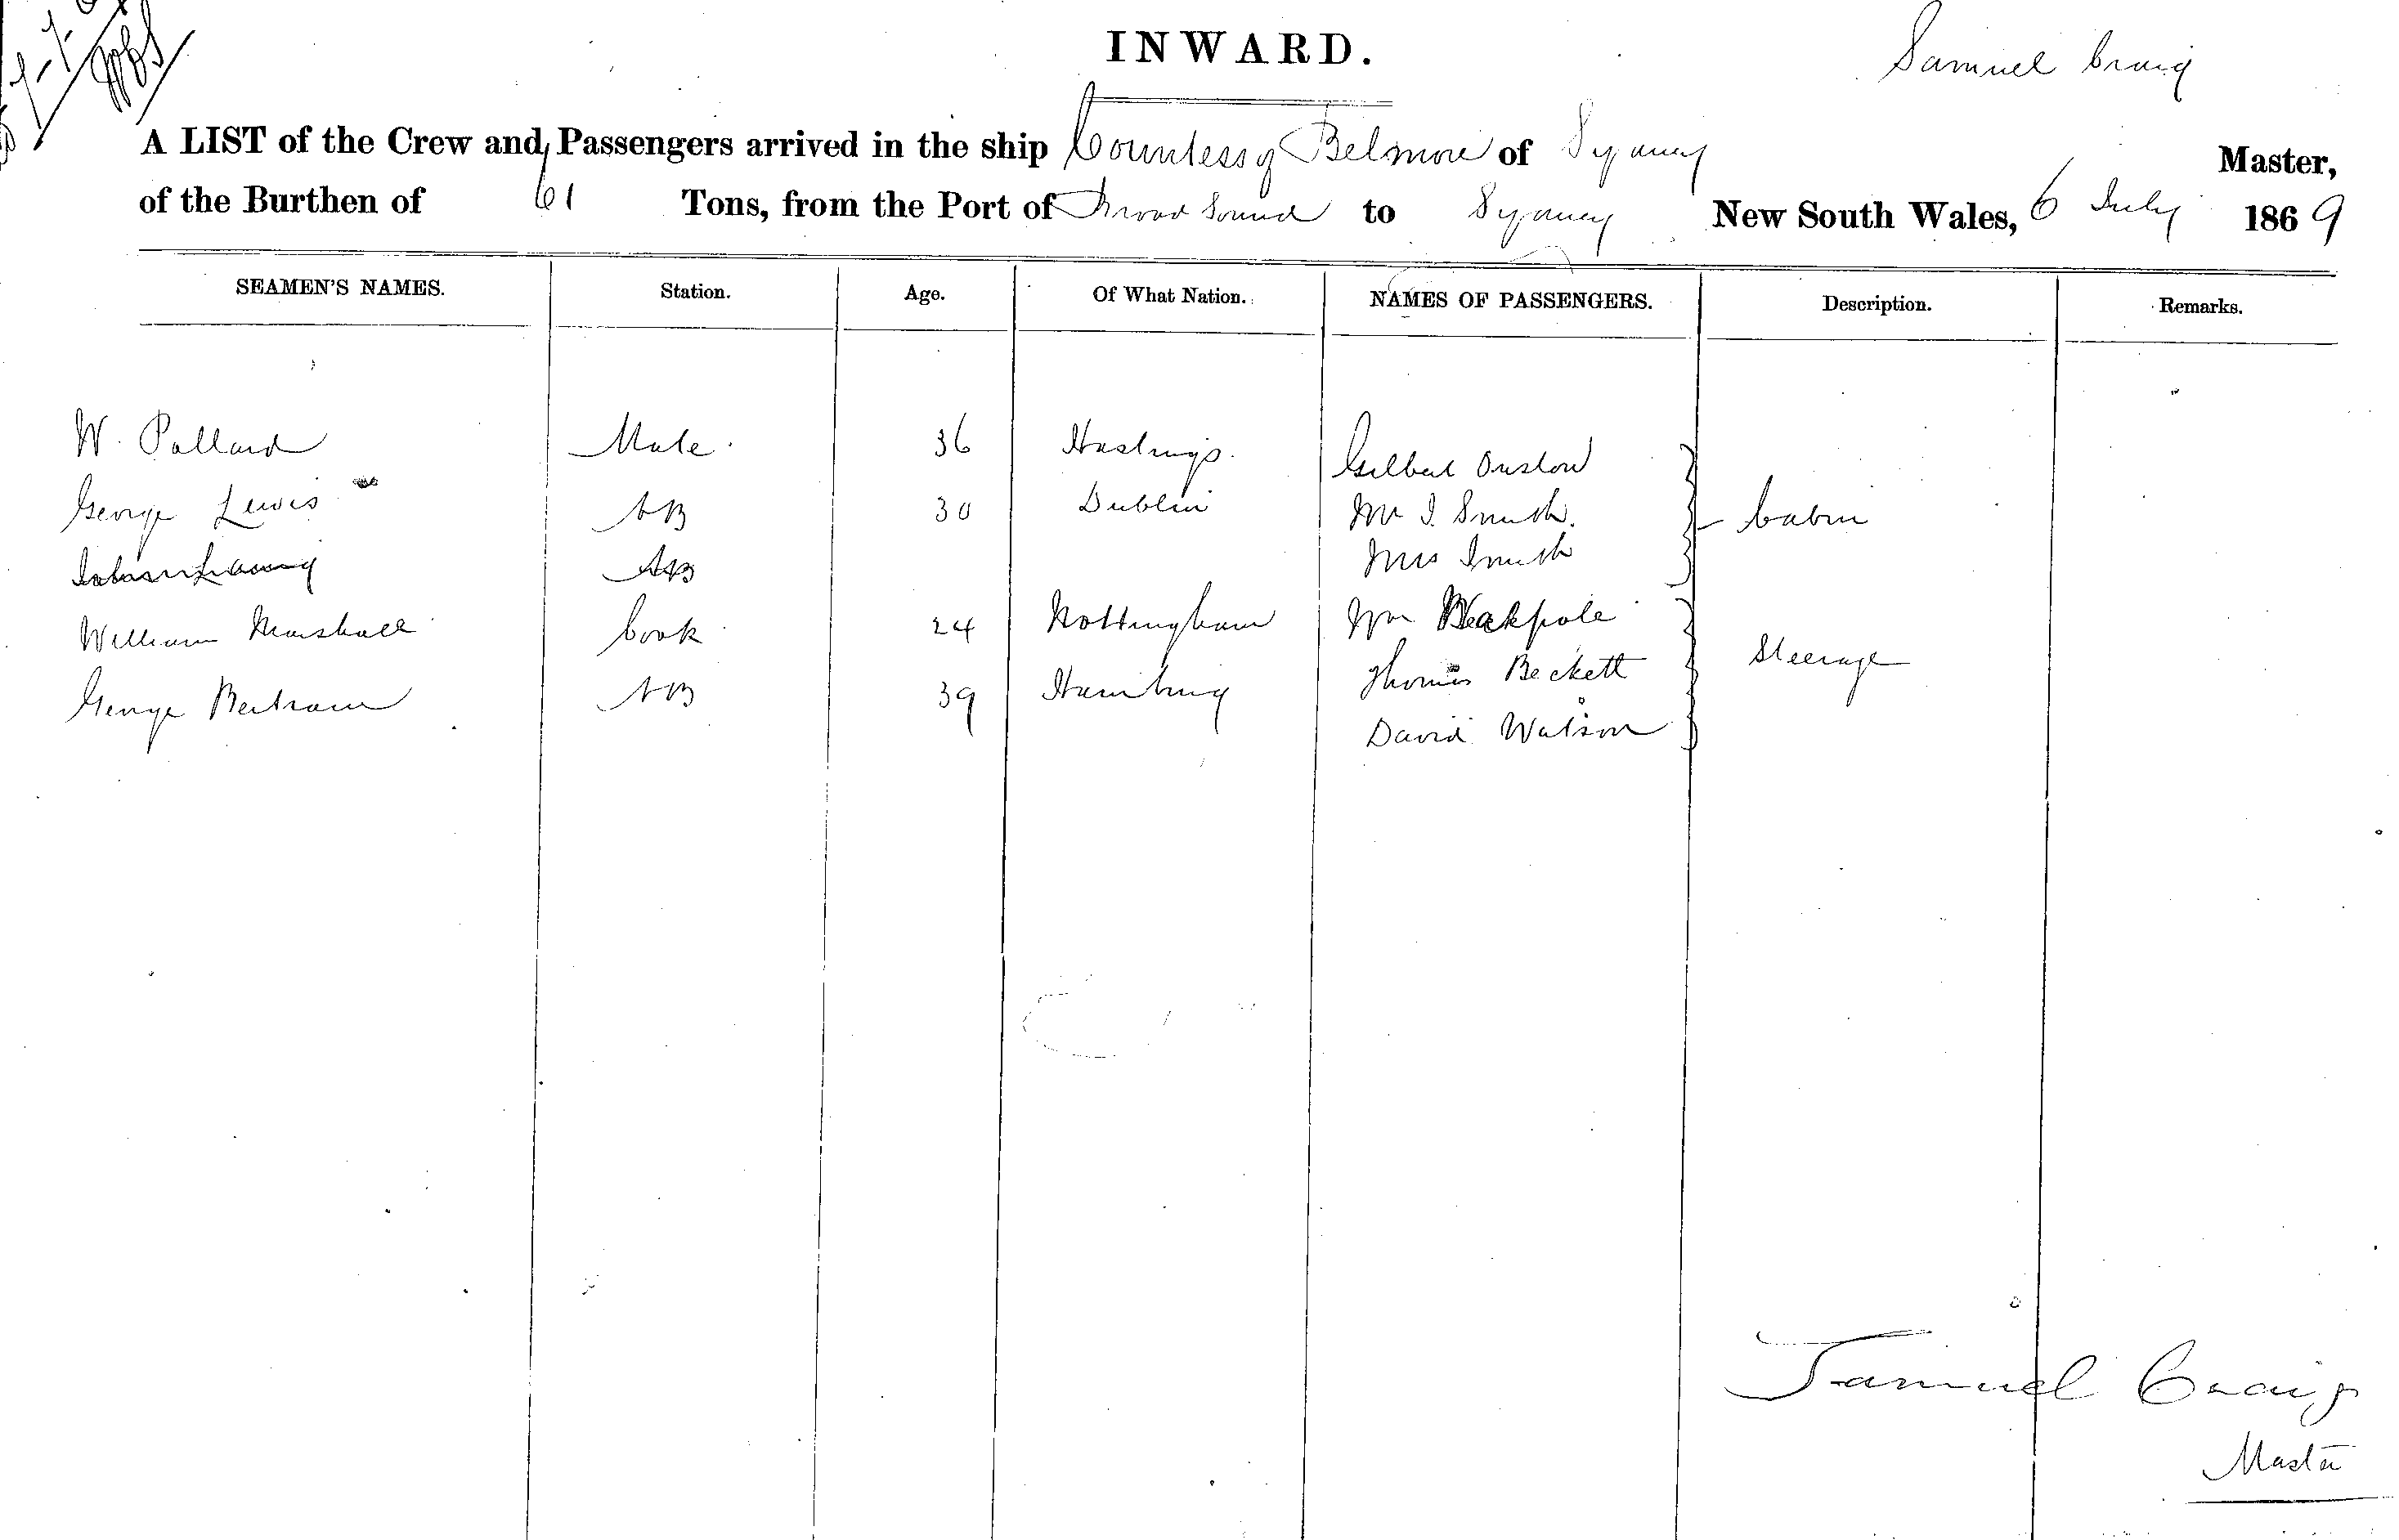 INWARD.
Samuel Craig
A LIST of the Crew and Passengers arrived in the ship Countess of Belmore of Sydney Master,
of the Burthen of 61 Tons, from the Port of Broad Sound to Sydney New South Wales, 6 July 1869
SEAMEN'S NAMES. Station. Age. Of What Nation. NAMES OF PASSENGERS. Description. Remarks.
W. Pollard Mate. 36 Hastings. Gilbert Onslow
George Lewis AB 30 Dublin Mr J. Smith. Cabin
AB Mrs Smith
William Marshall Cook 24 Nottingham Wm
George Bertram AB 39 Hamburg Thomas Beckett Steerage
David Watson
Samuel Craig
Master